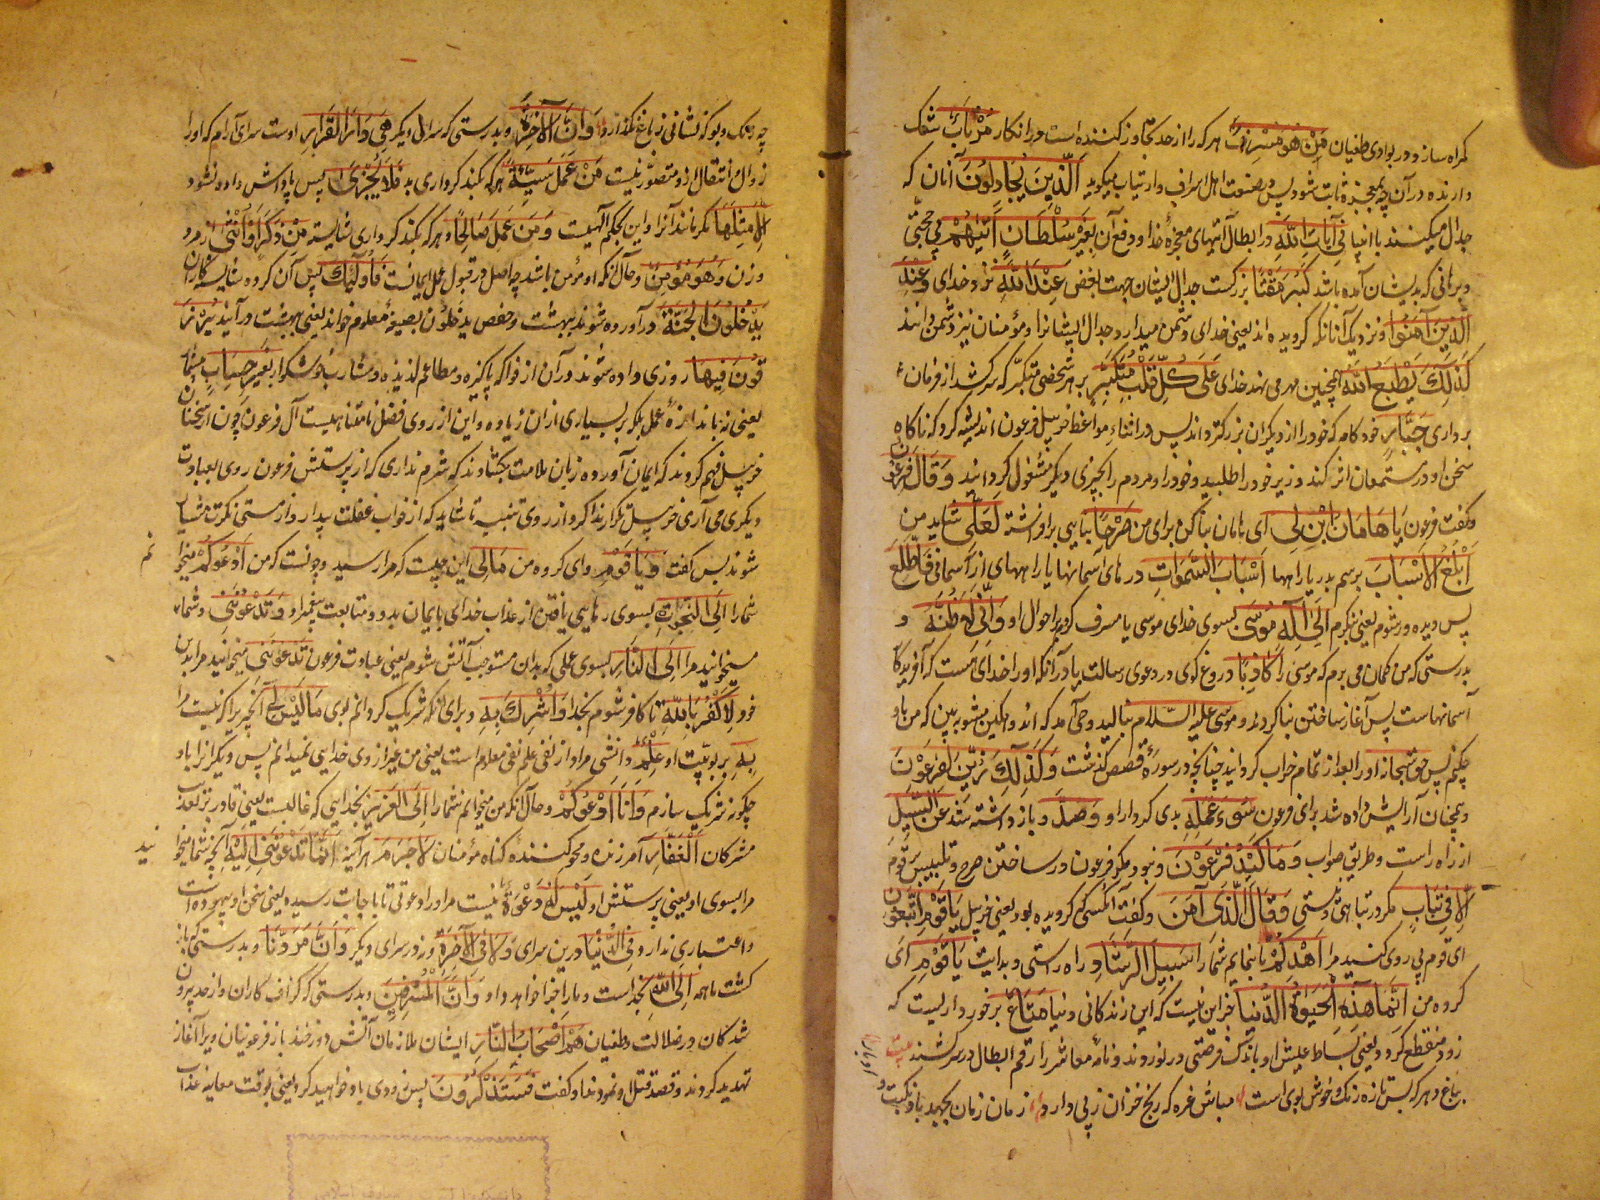 کمراه سازد در بوادی طغیان مَنْ هُوَ مُسْرِفٌ هر که را از حد تجاوز کننده است در انکار مُرْتَابٌ شک
دارنده در آن چه بمعجزه ثابت شود پس در صفت اهل اسراف و ارتیاب میکوید اَلَّذِینَ یُجَادِلُونَ آنان که
جدال میکنند با انبیا فِی آیَاتِ اللّهِ در ابطال آیتهای معجزهٔ خدا و دفع آن بِغَیْرِ سُلْطَانٍ اَتَیهُمْ بی حجتی
و برهانی که بدیشان آمده باشد کَبُرَ مَقْتًا بزرکست جدال ایشان جهت بغض عِنْدَ اللّهِ نزد خدای وَ عِنْدَ
الَّذِینَ آمَنُوا و نزدیک آنانکه کرویده اند یعنی خدای دشمن میدارد جدال ایشانرا و مؤمنان نیز دشمن دانند
کَذَلِکَ یَطْبَعُ اللّهُ همچنین مهر می نهد خدای عَلَی کُلِّ قَلْبِ مُتَکَبِّرٍ بر هر شخصی متکبر که سرکشد از فرمان
برداری جَبَّارٍ خودکام که خود را از دیکران بزرکتر داند پس در اثناء مواعظ خربیل فرعون اندیشه کرد که ناکاه
سخن او در مستمعان اثر کند وزیر خود را طلبید و خود را و مردم را بچیزی دیکر مشغول کردانید وَ قَالَ فِرْعَوْنُ
و کفت فرعون یَا هَامَانُ ابْنِ لِی ای هامان بنا کن برای من صَرْحًا بنایی برافراشته لَعَلِّی شاید من
اَبْلُغُ الْاَسْبَابَ برسم بدرها یا راهها اَسْبَابَ السَّمَوَاتِ درهای آسمانها یا راههای از آسمانی فَاَطَّلِعَ
پس دیده ور شوم یعنی بنکرم اِلَی اِلَهِ مُوسَی بسوی خدای موسی یا مشرف کردم بر احوال او وَ اِنِّی لَاَظُنُّهُ و
بدرستی که من کمان می برم که موسی را کَاذِبًا دروغ کوی در دعوی رسالت یا در آنکه او را خدای هست که آفریدکار
آسمانهاست پس آغاز ساختن بنا کردند و موسی علیه السلام بنالید وحی آمد که اندوهکین مشو به بین که من با او
چکنم پس حق سبحانه او را بعد از تمام خراب کردانید چنانچه در سورهٔ قصص کذشت وَ کَذَلِکَ زُیِّنَ لِفِرْعَوْنَ
و همچنان آرایش داده شد برای فرعون سُوءُ عَمَلِهِ بدی کردار او وَ صُدَّ و باز داشته شد عَنِ السَّبِیلِ
از راه راست و طریق صواب وَ مَا کَیْدُ فِرْعَوْنَ و نبود مکر فرعون در ساختن صرح و تلبیس بر قوم
اِلَّا فِی تَبَابٍ مکر در تباهی و نیستی وَ قَالَ الَّذِی آمَنَ و کفت آنکسی که کرویده بود یعنی خربیل یَا قَوْمِ اتَّبِعُونِ
ای قوم پی روی کنید مرا اَهْدِکُمْ تا بنمایم شما را سَبِیلَ الرَّشَادِ راه راستی و هدایت یَا قَوْمِ ای
کروه من اِنَّمَا هَذِهِ الْحَیَوةُ الدُّنْیَا جز این نیست که این زندکانی دنیا مَتَاعٌ برخورداریست که
زود منقطع کردد یعنی بساط عیش او باندک فرصتی در نوردند و نامهٔ معاشر را رقم ابطال در سر کشند بیت
باغ دهر که بس تازه رنک خوش بوی است مباش غره که رنج خزان ز پی دارد زمان زمان بجهد باد نکبت و
چه رنک و بو که نشانی ز باغ نکذارد وَ اِنَّ الْآخِرَةَ و بدرستی که سرای دیکر هِیَ دَارُ الْقَرَارِ اوست سرای آرام که او را
زوال و انتقال ازو متصور نیست مَنْ عَمِلَ سَیِّئَةً هر که کند کرداری بد فَلَا یُجْزَی پس پاداش داده نشود
اِلَّا مِثْلَهَا مکر مانند آنرا و این بحکم الهیست وَ مَنْ عَمِلَ صَالِحًا و هر که بکند کرداری شایسته مِنْ ذَکَرٍ اَوْ اُنْثَی از مرد
و زن وَ هُوَ مُؤْمِنٌ و حال آنکه او مؤمن باشد چه اصل در قبول عمل ایمانست فَاُولَئِکَ پس آن کروه شایسته کاران
یُدْخَلُونَ الْجَنَّةَ در آورده شوند ببهشت و حفص یدخلون بصیغهٔ معلوم خواند یعنی ببهشت درآیند یُرْزَ
قُونَ فِیهَا روزی داده شوند در آن از فواکه پاکیزه و مطاعم لذیذه و مشارب خوشکوار بِغَیْرِ حِسَابٍ بیشمار
یعنی نه باندازهٔ عمل بلکه بسیاری از ان زیاده و این از روی فضل نامتناهیست آل فرعون چون از سخنان
خربیل فهم کردند که ایمان آورده زبان ملامت بکشادند که شرم نداری که از پرستش فرعون روی بعبادت
دیکری می آری خربیل تکرار ندا کرد از روی تنبیه تا شاید که از خواب غفلت بیدار و از مستی نکرت هشیار
شوند پس کفت وَ یَا قَوْمِ و ای کروه من مَا لِی این چیست که مرا رسید و چونست که من اَدْعُوکُمْ میخوانم
شما را اِلَی النَّجَوةِ بسوی رهایی یافتن از عذاب خدای بایمان بدو و متابعت پیغمبر او وَ تَدْعُونَنِی و شما
میخوانید مرا اِلَی النَّارِ بسوی عملی که بدان مستوجب آتش شوم یعنی عبادت فرعون تَدْعُونَنِی میخوانید مرا بدین
خود لِاَکْفُرَ بِاللّهِ تا کافر شوم بخدا وَ اُشْرِکَ بِهِ و برای آنکه شریک کردانم بوی مَا لَیْسَ لِی آنچیزیرا که نیست مرا
بِهِ بربوبیت او عِلْمٌ دانشی مراد از نفی علم نفی معلوم است یعنی من غیر از وی خدایی نمیدانم پس دیکرانرا با او
چکونه شریک سازم وَ اَنَا اَدْعُوکُمْ و حال آنکه من میخوانم شما را اِلَی الْعَزِیزِ بخدایی که غالبست یعنی قادر بر تعذیب
مشرکان الْغَفَّارِ آمرزنده و محو کننده کناه مؤمنان لَا جَرَمَ هر آینه اَنَّمَا تَدْعُونَنِی اِلَیْهِ آنچه شما میخوانید
مرا بسوی او یعنی پرستش او لَیْسَ لَهُ دَعْوَةٌ نیست مر او را دعوتی تا باجابت رسیده یعنی سخن او بیهوده است
و اعتباری ندارد فِی الدُّنْیَا درین سرای وَ لَا فِی الْآخِرَةِ و نه در سرای دیکر وَ اَنَّ مَرَدَّنَا و بدرستی که باز
کشت ما همه اِلَی اللّهِ بخداست و ما را جزا خواهد داد وَ اَنَّ الْمُسْرِفِینَ و بدرستی که کزاف کاران و از حد بیرون
شدکان در ضلالت و طغیان هُمْ اَصْحَابُ النَّارِ ایشان ملازمان آتش دوزخند باز فرعونیان ویرا آغاز
تهدید کردند و قصد قتل او نمودند او کفت فَسَتَذْکُرُونَ پس زودی یاد خواهید کرد یعنی بوقت معاینه عذاب